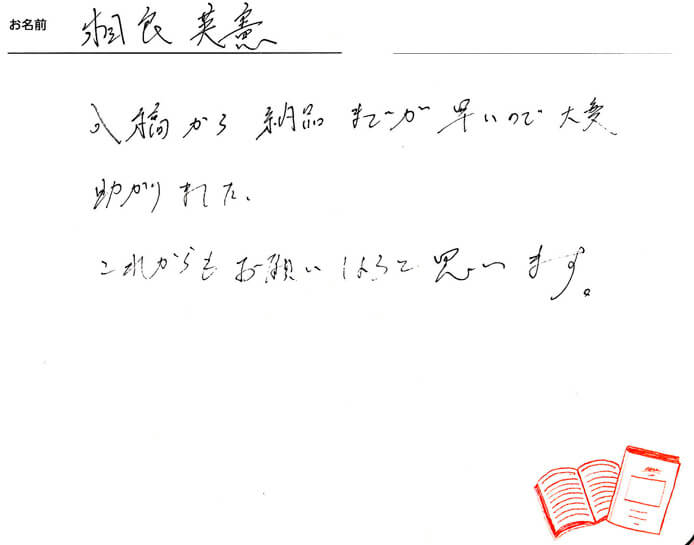 お名前 相良 英憲
入稿から納品までが早いので大変
助かりました。
これからもお願いしようと思います。